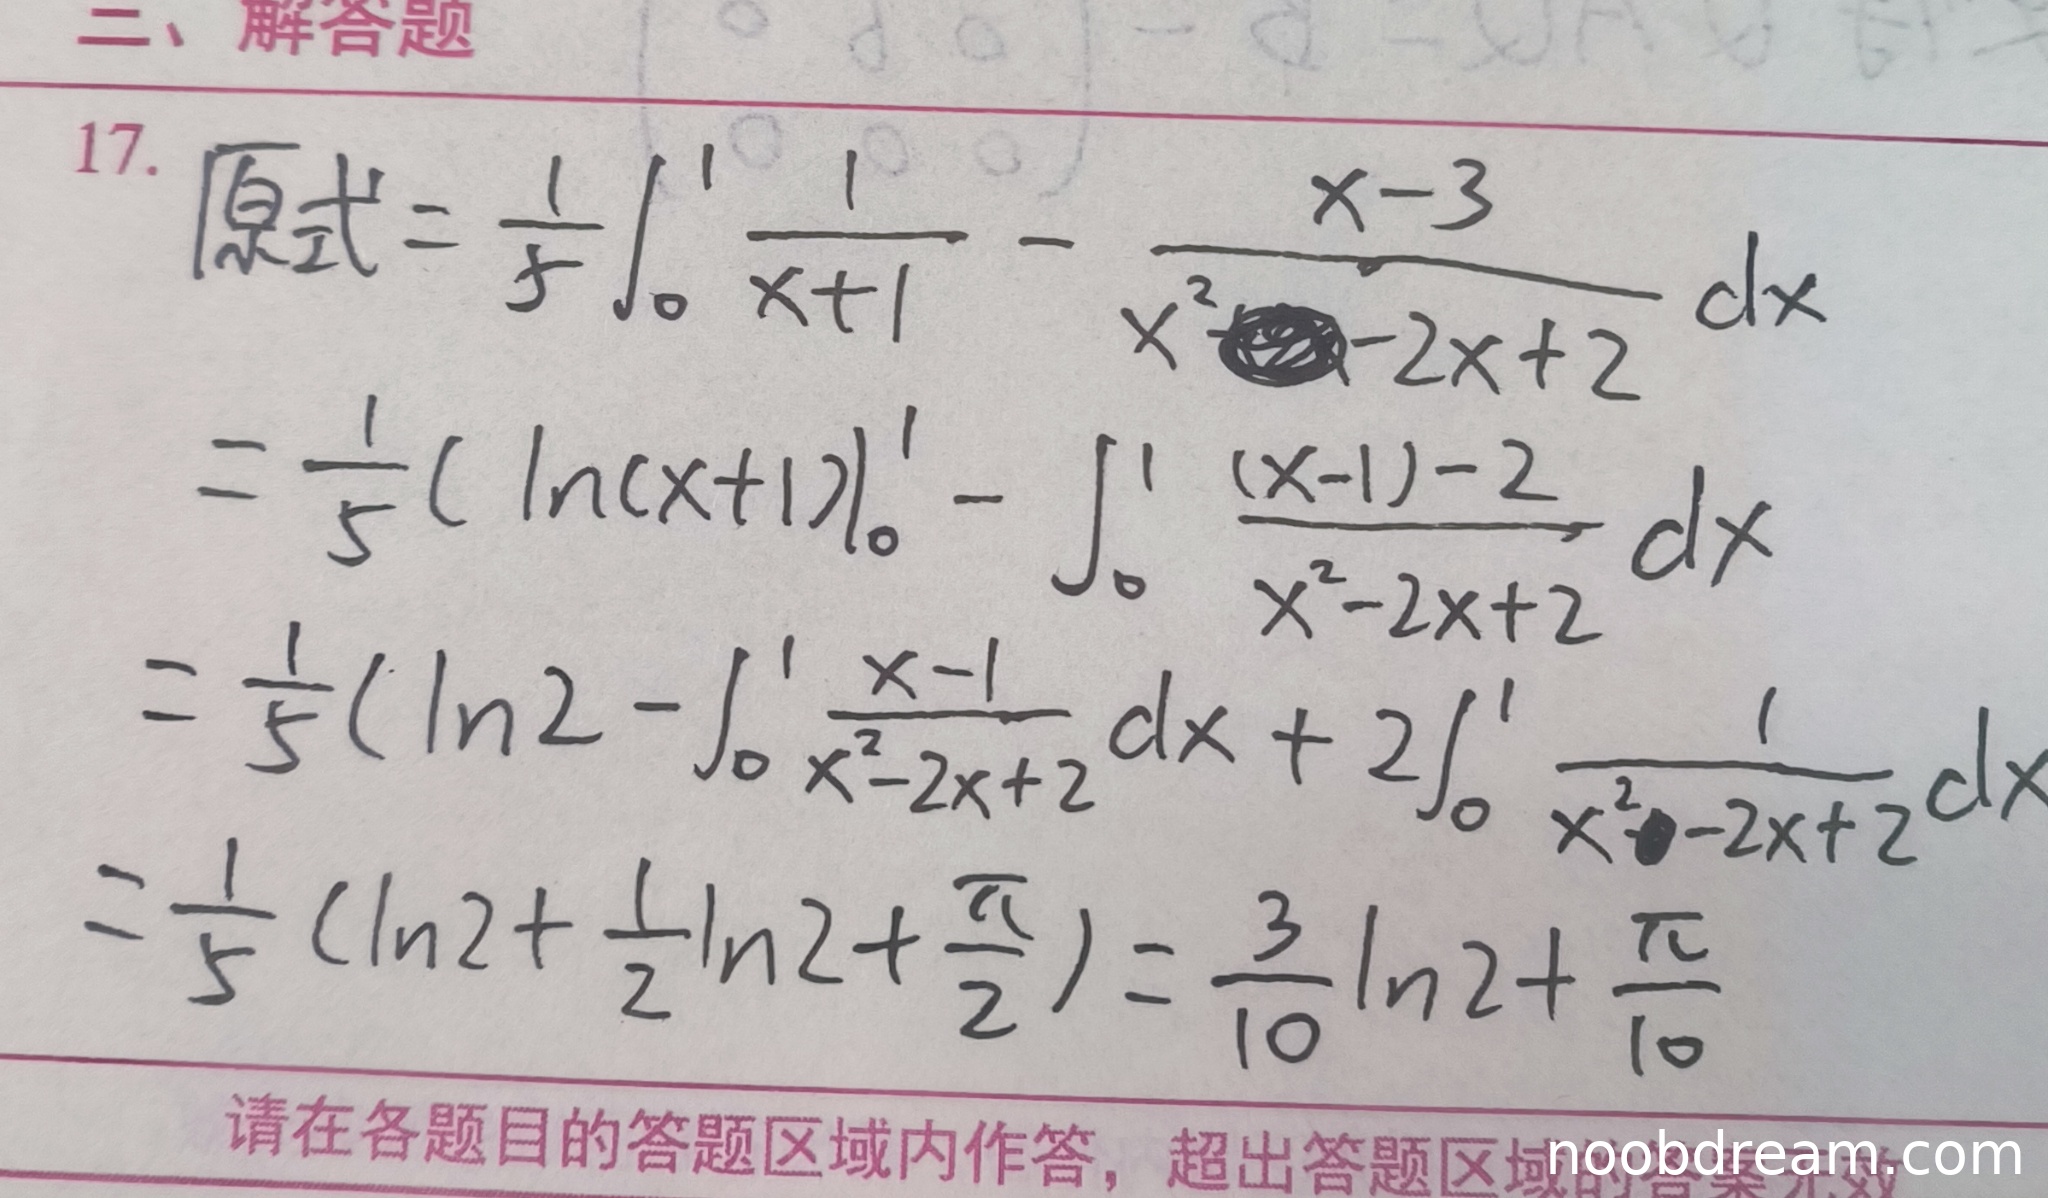 二、解答题
17. 原式 = 1/5 ∫₀¹ 1/(x+1) - (x-3)/(x²-2x+2) dx
= 1/5 ( ln(x+1)|₀¹ - ∫₀¹ ((x-1)-2)/(x²-2x+2) dx
= 1/5 ( ln2 - ∫₀¹ (x-1)/(x²-2x+2) dx + 2∫₀¹ 1/(x²-2x+2) dx
= 1/5 (ln2 + 1/2 ln2 + π/2 ) = 3/10 ln2 + π/10
请在各题目的答题区域内作答，超出答题区域的答案无效
noobdream.com